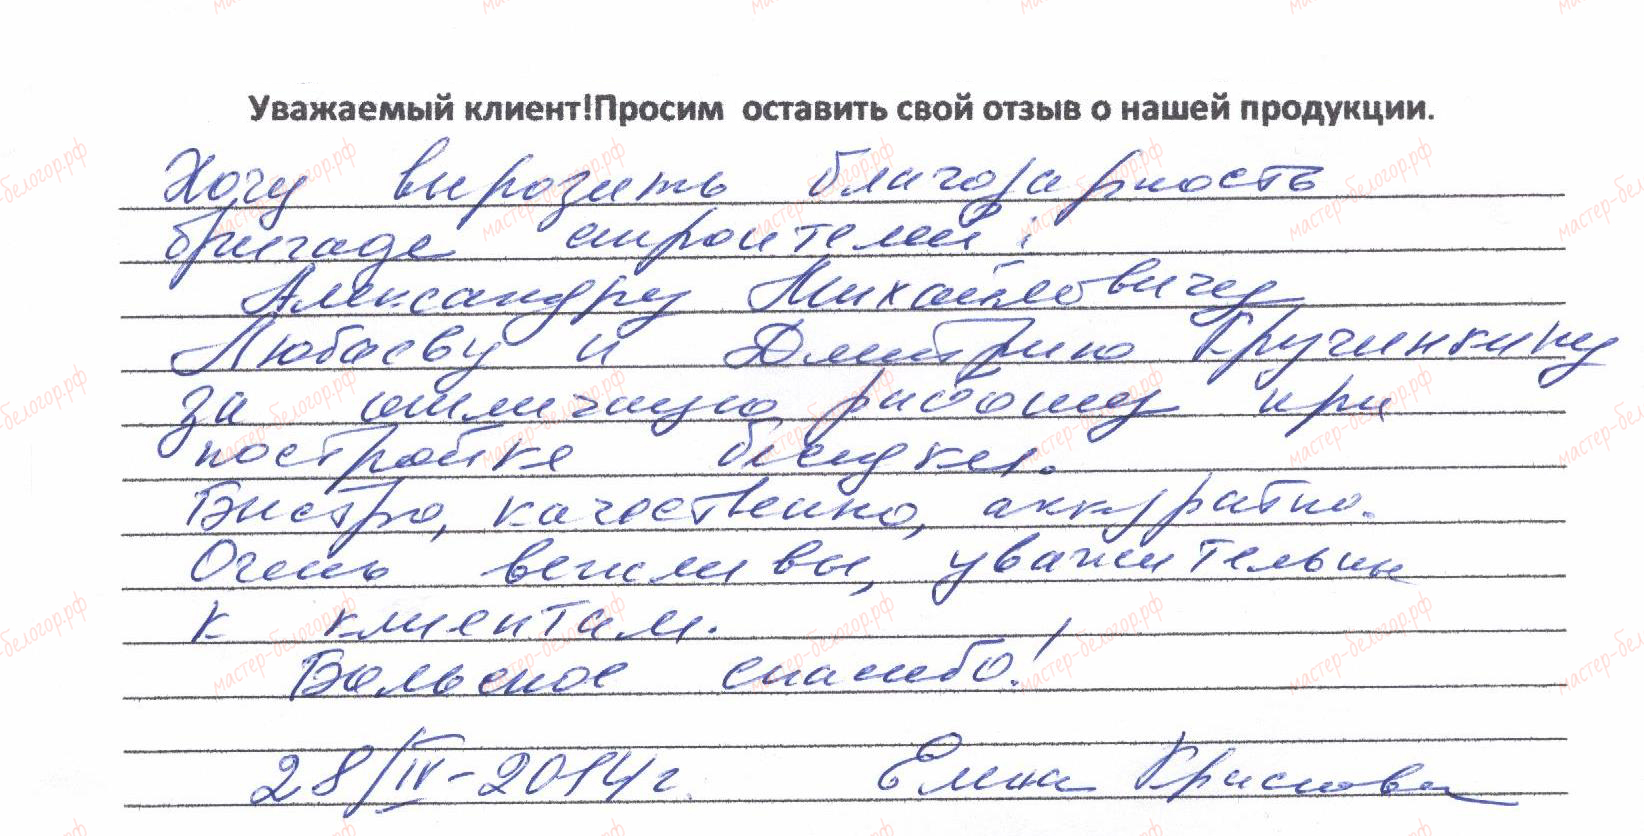 Уважаемый клиент!Просим оставить свой отзыв о нашей продукции.
Хочу выразить благодарность
бригаде строителей:
Александру Михайловичу
Любаеву и Дмитрию Кручинкину
за отличную работу при
постройке беседки.
Быстро, качественно, аккуратно.
Очень вежливы, уважительны
к клиентам.
Большое спасибо!
28/IV-2014г. Елена
мастер-белогор.рф